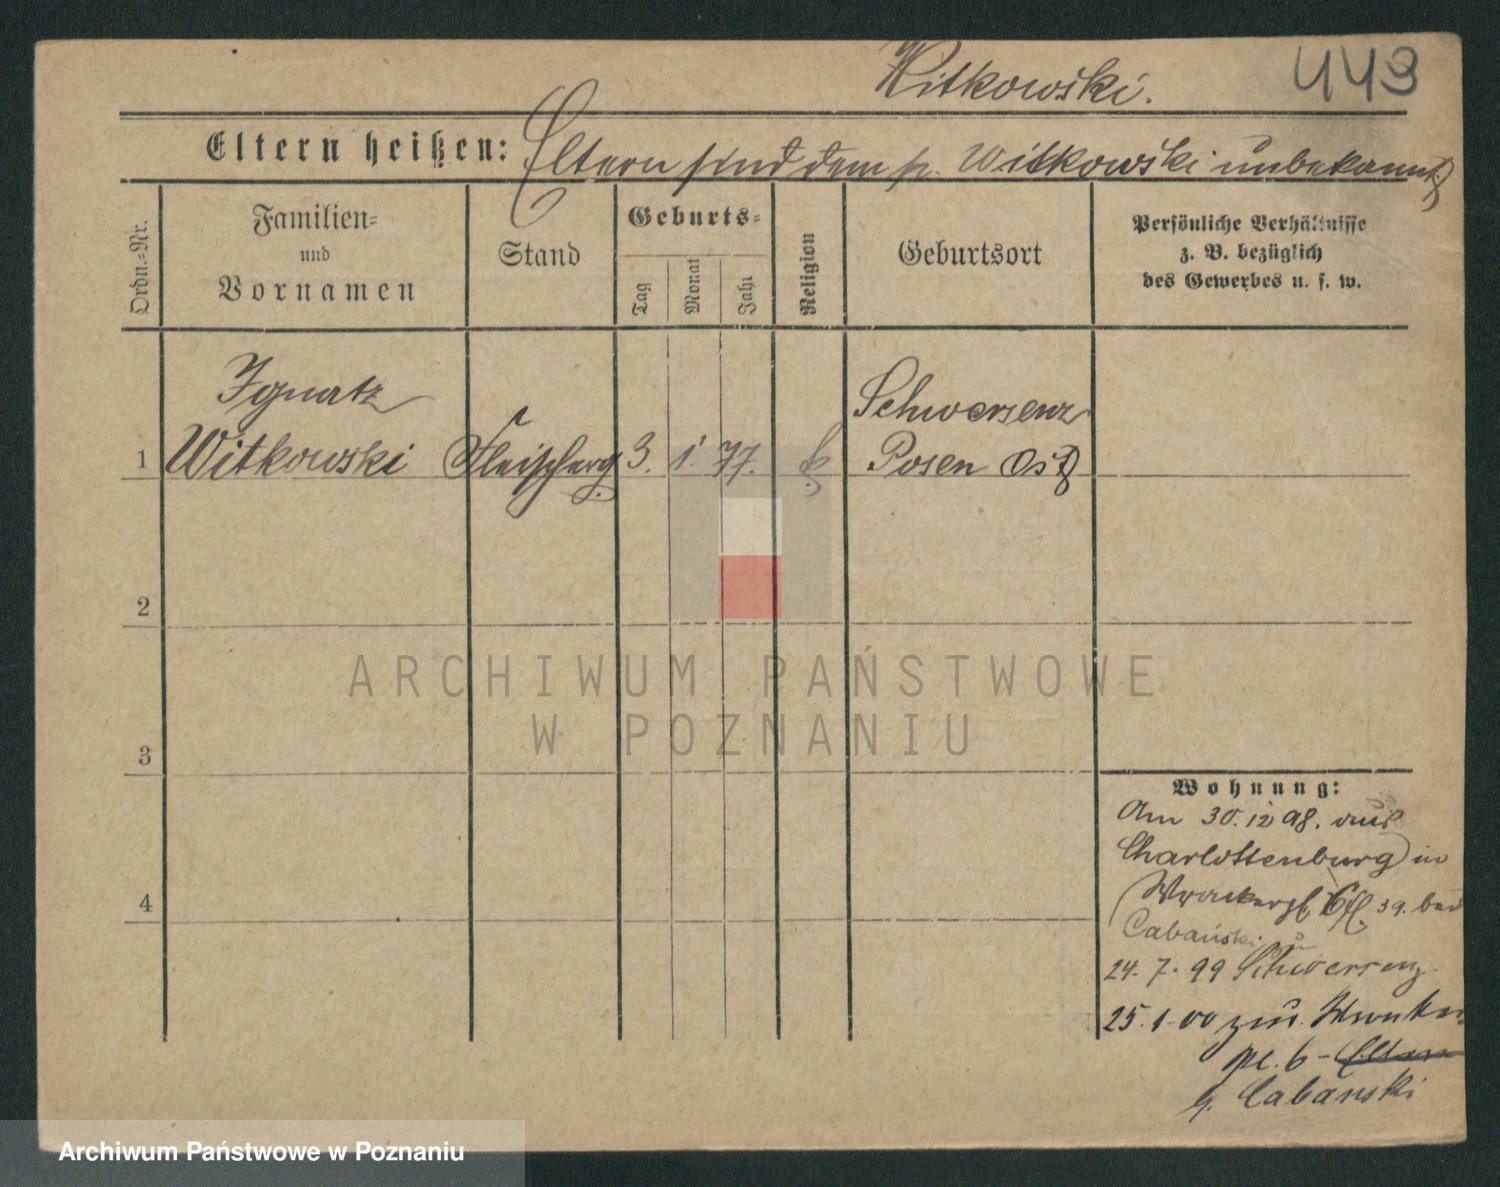 Witkowski.
443
Eltern heißen: Eltern sind dem p. Witkowski unbekannt
Ordn.-Nr.
Familien-
und
Vornamen
Stand
Geburts-
Tag
Monat
Jahr
Religion
Geburtsort
Persönliche Verhältnisse
z. B. bezüglich
des Gewerbes u. s. w.
Ignatz
Schwersenz
1 Witkowski Fleischerg. 3. 1. 77. k Posen Ost
2
ARCHIWUM PAŃSTWOWE
W POZNANIU
3
Wohnung:
Am 30. 12 98. aus
Charlottenburg in
39. bei
4
Cabański
24. 7. 99 Schwersenz
25. 1. 00 zur. Wronker
pl. 6
b. Cabanski
Archiwum Państwowe w Poznaniu